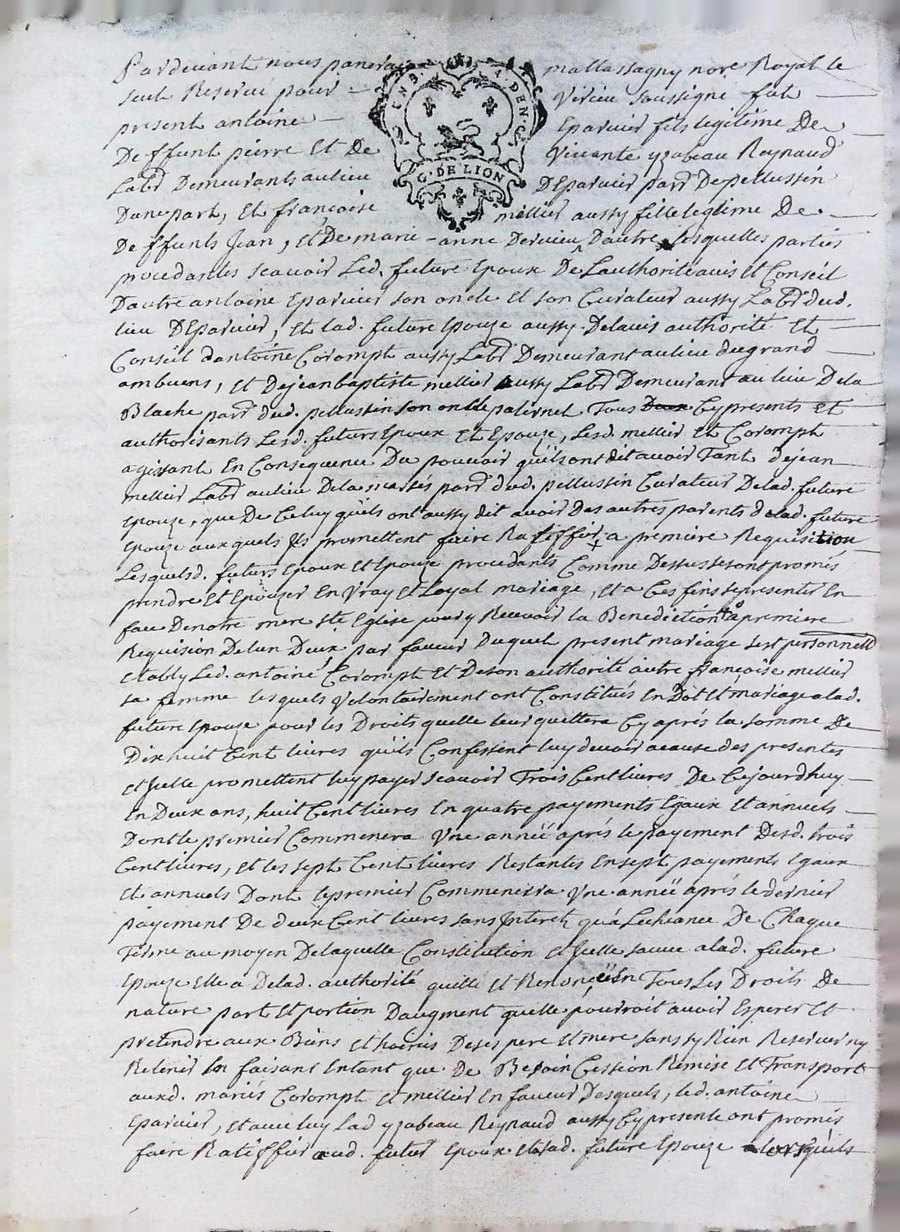 Pardevant nous panera mallassagny nore Royal le
seul Reservé pour Virieu soussigne fut
present antoine Eparvier fils legitime De
Deffunt pierre Et De Vivante yzabeau Reynaud
Labr Demeurants au lieu DEparvier parr De pellussin
Dune part, Et françoise mellier aussy fille legtime De
Deffunts Jean, Et De marie-anne Dervieu Dautre Lesquelles parties
procedantes scavoir Led. future Epoux De Lauthorité avis Et Conseil
Dautre antoine Eparvier son oncle Et son Curateur aussy Labr dud.
lieu DEparvier, Et lad. future Epouze aussy Delavis authorité Et
Conseil dantoine Corompt aussy Labr Demeurant au lieu du grand
ambuens, Et De jean baptiste mellier aussy Labr Demeurant au lieu Dela
Blache parr dud. pellussin son oncle paternel Tous Cy presents Et
authorisants Lesd. futurs Epoux Et Epouze, Lesd. mellier Et Corompt
agissant En Consequence Du pouvoir quils ont dit avoir Tant de jean
mellier Labr au lieu Dela parr dud. pellussin Curateur Delad. future
Epouze, que De Celuy quils ont aussy dit avoir Des autres parents delad. future
Epouze aux quels ils promettent faire Rateffier a premiere Requisition
Lesquelsd. futurs Epoux Et Epouze procedants Comme Dessus se sont promis
prendre Et Epouzer En Vray Et Loyal mariage, Et a Ces fins se presenter En
face De notre mere Ste Eglise pour y Recevoir la Benediction a premiere
Requision De lun Deux par faveur Duquel present mariage sest personnell
Etably Led. antoine Corompt Et De son authorité autre françoise mellier
sa femme lesquels Volontairement ont Constitués En Dot Et mariage alad.
future Epouse pour les Droits quelle leur quittera Cy aprés la somme De
Dix huit Cent livres quils Confessent luy devoir acause des presentes
Et Jcelle promettent luy payer scavoir Trois Cent livres De Cejourdhuy
En Deux ans, huit Cent livres En quatre payements Egaux Et annuels
Dont le premier Commencera Une année aprés le Payement Desd. trois
Cent livres, Et les sept Cent livres Restantes En sept payements Egaux
Et annuels Dont le premier Commencera Une année aprés le dernier
payement De deux Cent livres sans Jnterets qua Lecheance De Chaque
Terme au moyen De laquelle Constitution Et Jcelle sauve alad. future
Epouze Elle a Delad. authorité quitté Et Renoncé En Tous Les Droits De
nature part Et portion Daugment quelle pourroit avoir Esperer Et
pretendre aux Biens Et hoiries De ses pere Et mere sans sy Rien Reserver ny
Retenir En faisant Entant que De Besoin Cession Remise Et Transport
auxd. mariés Corompt Et mellier En faveur Desquels, led. antoine
Eparvier, Et avec luy Lad yzabeau Reynaud aussy Cy presente ont promis
faire Rateffier aud. futur Epoux Et lad. future Epouze alorsquils
G. DE LION